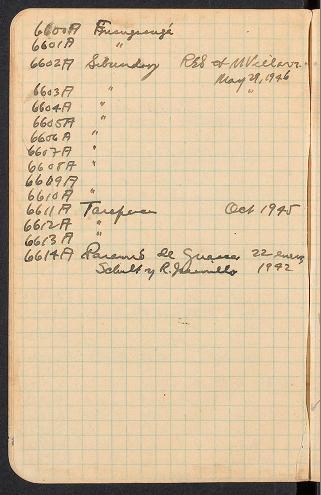 6600A Fusagasugá
6601A "
6602A Sibundoy RES & M Villarr.
May 29, 1946
6603A " "
6604A "
6605A "
6606A "
6607A "
6608A "
6609A
6610A "
6611A Tarapaca Oct 1945
6612A "
6613A "
6614A Paramo de Guasca 22 enero
Schult y R. Jaramillo 1942